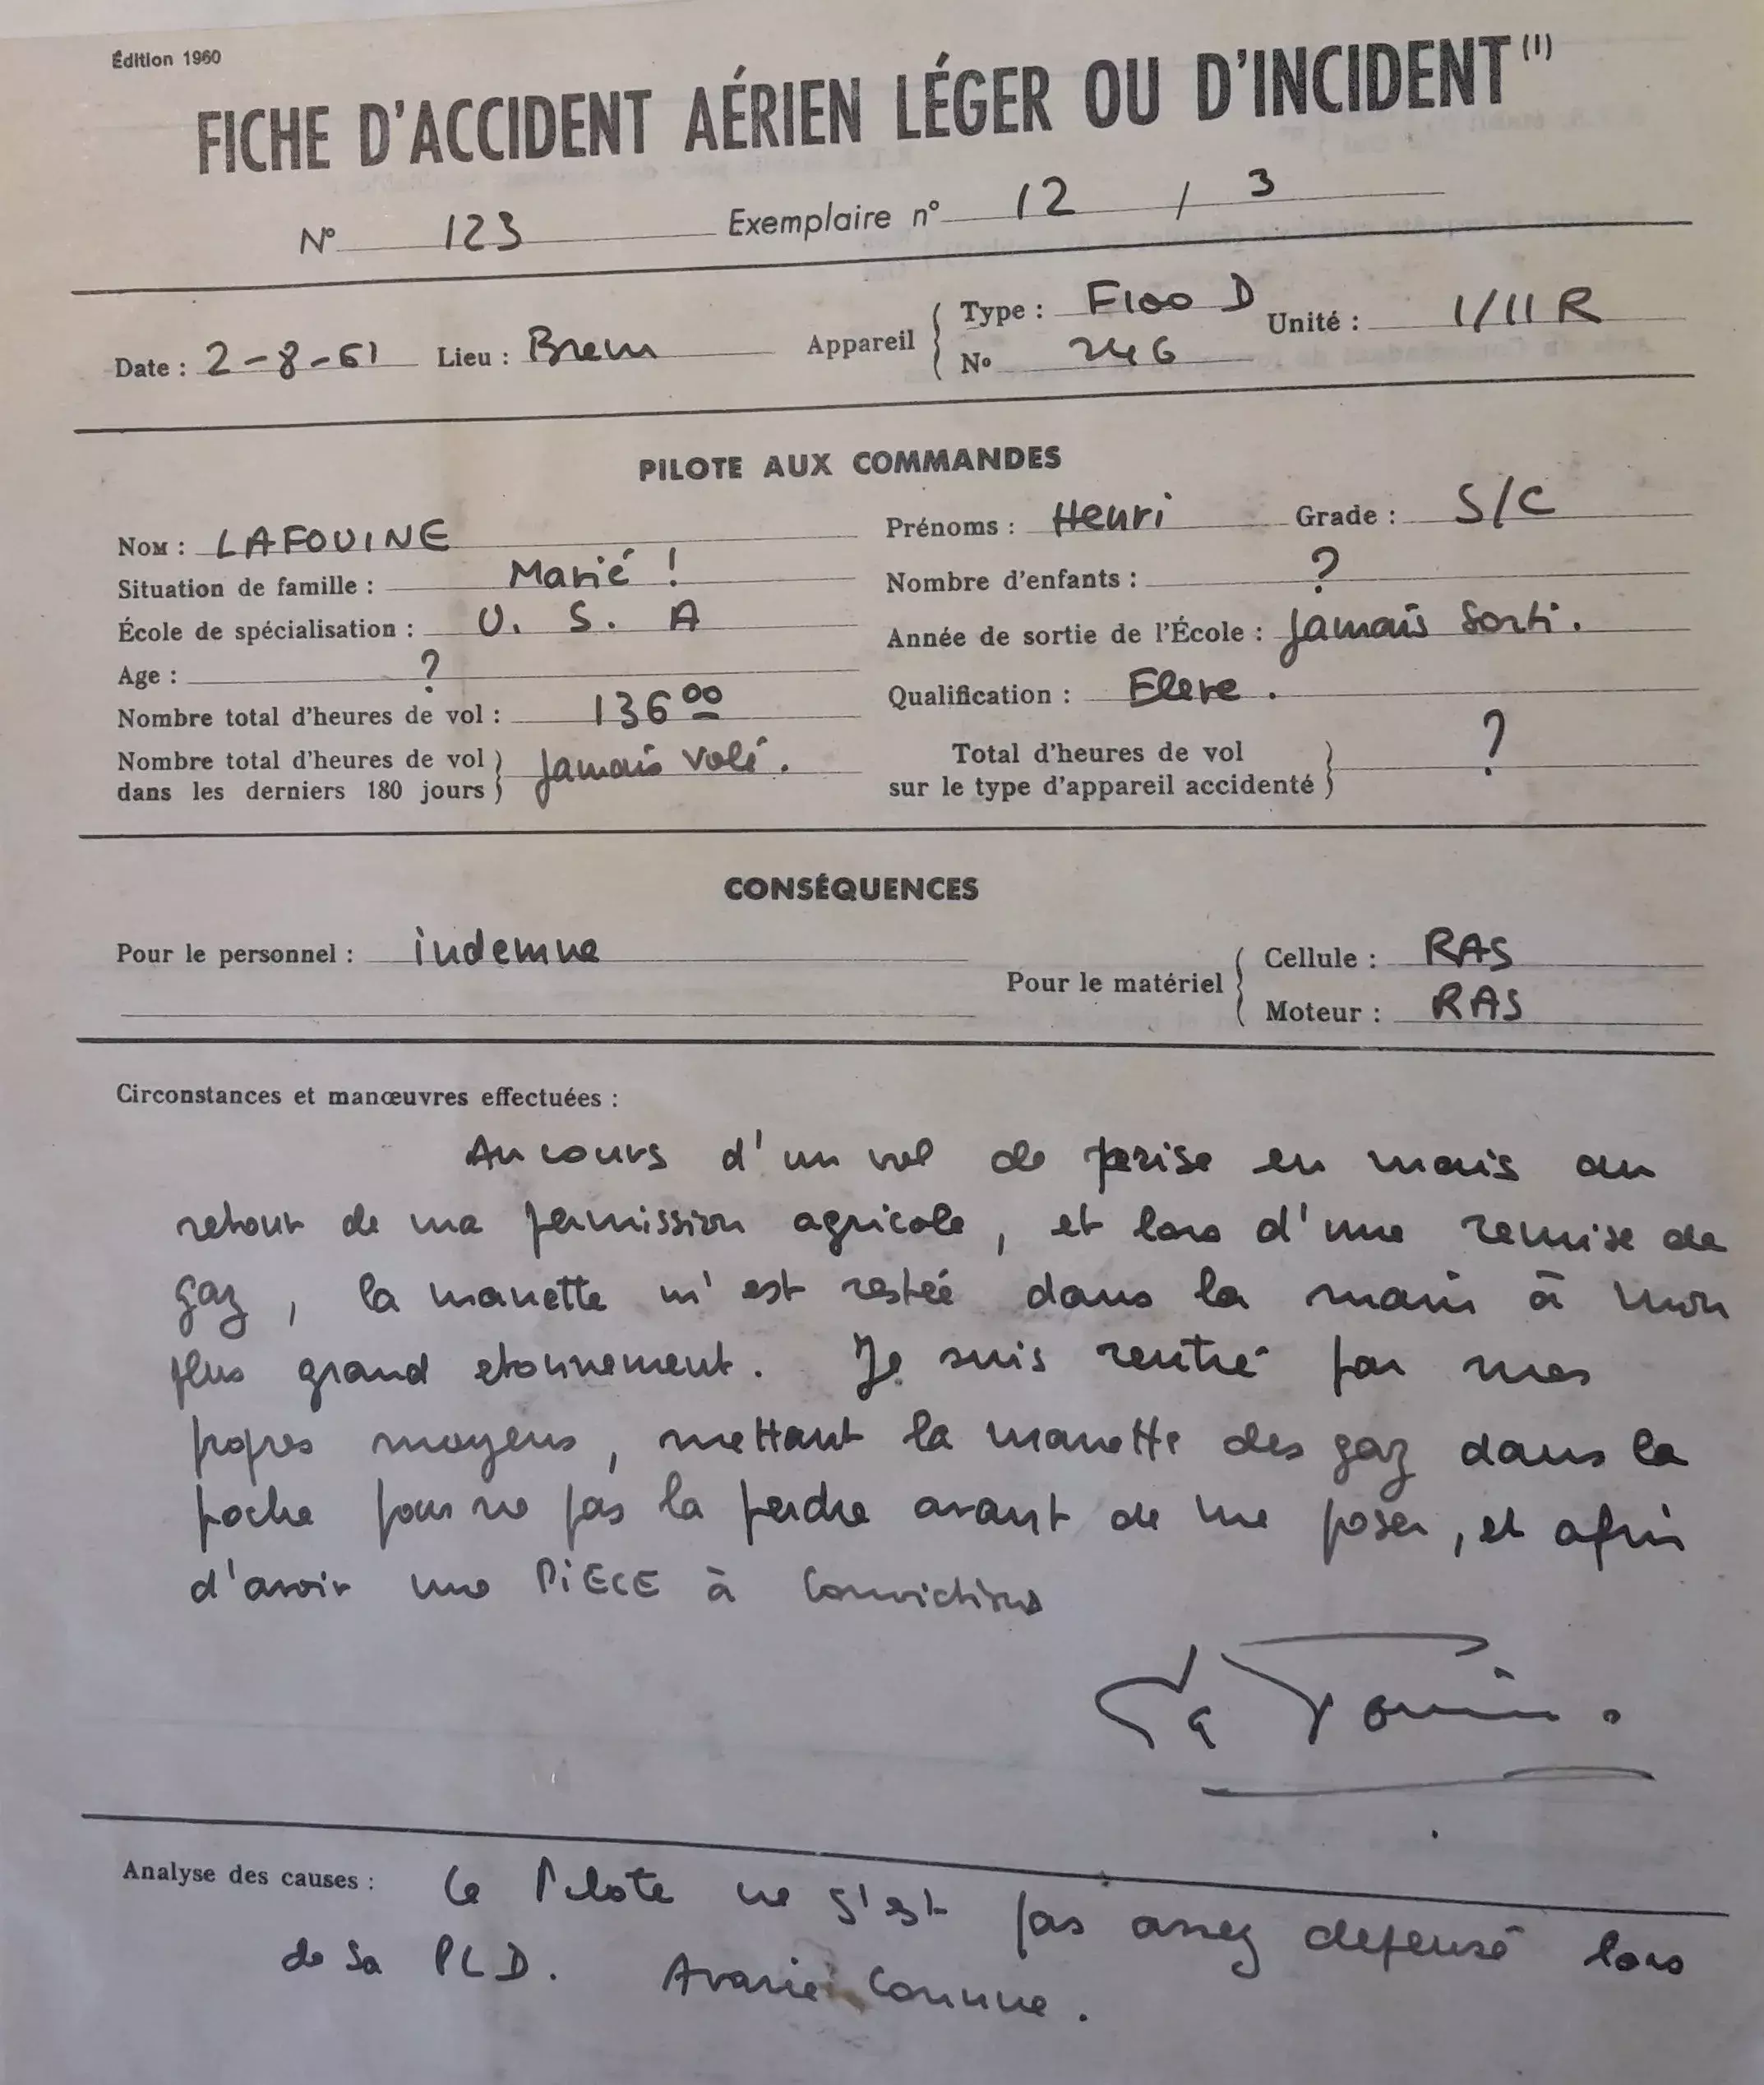 Édition 1960
FICHE D'ACCIDENT AÉRIEN LÉGER OU D'INCIDENT (1)
N° 123 Exemplaire n° 12 / 3
Date : 2-8-61 Lieu : Brem Appareil Type : F100 D Unité : 1/11 R
N° 246
PILOTE AUX COMMANDES
Nom : LAFOUINE Prénoms : Henri Grade : S/C
Situation de famille : Marié ! Nombre d'enfants : ?
École de spécialisation : U. S. A Année de sortie de l'École : Jamais Sorti.
Age : ? Qualification : Eleve.
Nombre total d'heures de vol : 136 00
Nombre total d'heures de vol dans les derniers 180 jours Jamais volé. Total d'heures de vol sur le type d'appareil accidenté ?
CONSÉQUENCES
Pour le personnel : indemne Pour le matériel Cellule : RAS
Moteur : RAS
Circonstances et manœuvres effectuées :
Au cours d'un vol de prise en main au
retour de ma permission agricole, et lors d'une remise de
gaz, la manette m'est restée dans la main à mon
plus grand etonnement. Je suis rentré par mes
propres moyens, mettant la manette des gaz dans la
poche pour ne pas la perdre avant de me poser, et afin
d'avoir une PiECE à Convictions
La Fouine.
Analyse des causes : Le Pilote ne s'est pas assez depensé lors
de sa PLD. Avarie Connue.